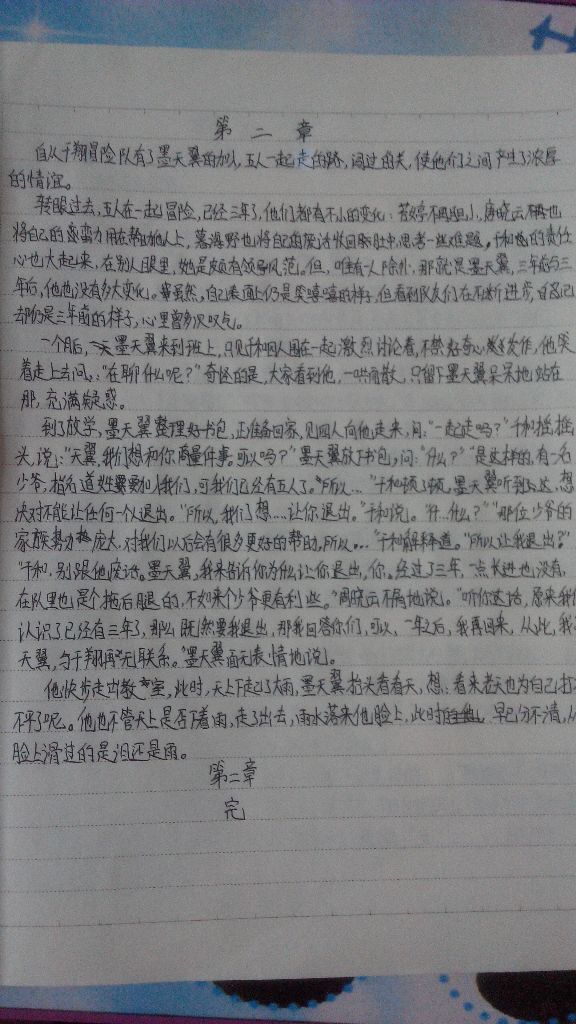 第 二 章
自从千翔冒险队有了墨天翼的加入,五人一起走的路,闯过的关,使他们之间产生了浓厚
的情谊。
转眼过去,五人在一起冒险,已经三年了,他们都有不小的变化:若婷不再胆小,周晓云不再也
将自己的蛮力用在帮助他人上,墓海野也将自己的废话收回肠肚中,思考一些难题,千和的责任
心也大起来,在别人眼里,她是颇有领导风范。但,唯有一人除外,那就是墨天翼,三年前与三
年后,他也没有多大变化。虽然,自己表面上仍是笑嘻嘻的样子,但看到队友们在不断进步,自己
却仍是三年前的样子,心里曾多次叹气。
一个月后,墨天翼来到班上,只见千和四人围在一起激烈讨论着,不禁好奇心发作,他笑
着走上去问:"在聊什么呢?"奇怪的是,大家看到他,一哄而散,只留下墨天翼呆呆地站在
那,充满疑惑。
到了放学,墨天翼整理好书包,正准备回家,见四人向他走来,问:"一起走吗?"千和摇摇
头,说:"天翼,我们想和你商量件事。可以吗?"墨天翼放下书包,问:"什么?""是这样的,有一名
少爷,指名道姓要加入我们,可我们已经有五人了。所以…"千和顿了顿,墨天翼听到这,想
决对不能让任何一个人退出。"所以,我们想…让你退出。"千和说。"什…什么?""那位少爷的
家族势力庞大,对我们以后会有很多更好的帮助,所以…"千和解释道。"所以让我退出?"
"千和,别跟他废话。墨天翼,我来告诉你为什么让你退出,你。经过了三年,一点长进也没有,
在队里也是个拖后腿的,不如来个少爷更有利些。"周晓云不屑地说。"听你这话,原来我们
认识了已经有三年了,那么既然要我退出,那我回答你们,可以,一年之后,我再回来,从此,我墨
天翼,与千翔再无联系。"墨天翼面无表情地说。
他快步走出教室,此时,天上下起了大雨,墨天翼抬头看看天,想:看来老天也为自己打
不平了呢。他也不管天上是否下着雨,走了出去,雨水落来他脸上,此时 早已分不清,从
脸上滑过的是泪还是雨。
第二章
完